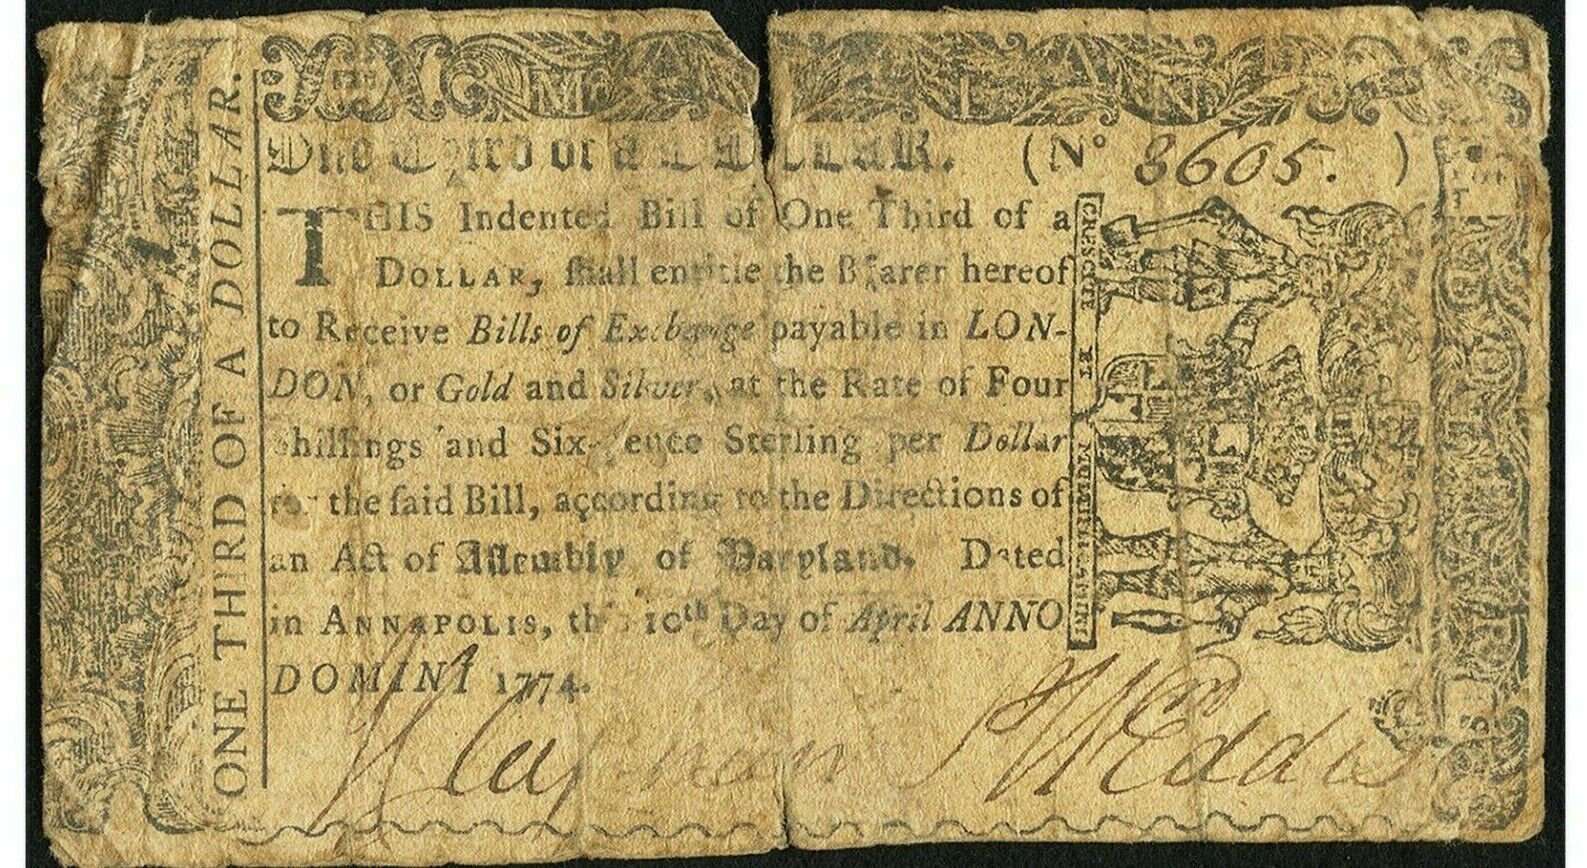 MARYLAND
One Third of a DOLLAR. (No 8605.)
THIS Indented Bill of One Third of a
DOLLAR, ſhall entitle the Bearer hereof
to Receive Bills of Exchange payable in LON-
DON, or Gold and Silver, at the Rate of Four
Shillings and Six-pence Sterling per Dollar
for the ſaid Bill, according to the Directions of
an Act of Aſſembly of Maryland. Dated
in ANNAPOLIS, this 10th Day of April ANNO
DOMINI 1774.
ONE THIRD OF A DOLLAR.
CRESCITE ET MULTIPLICAMINI
J Clapham Wm Eddis